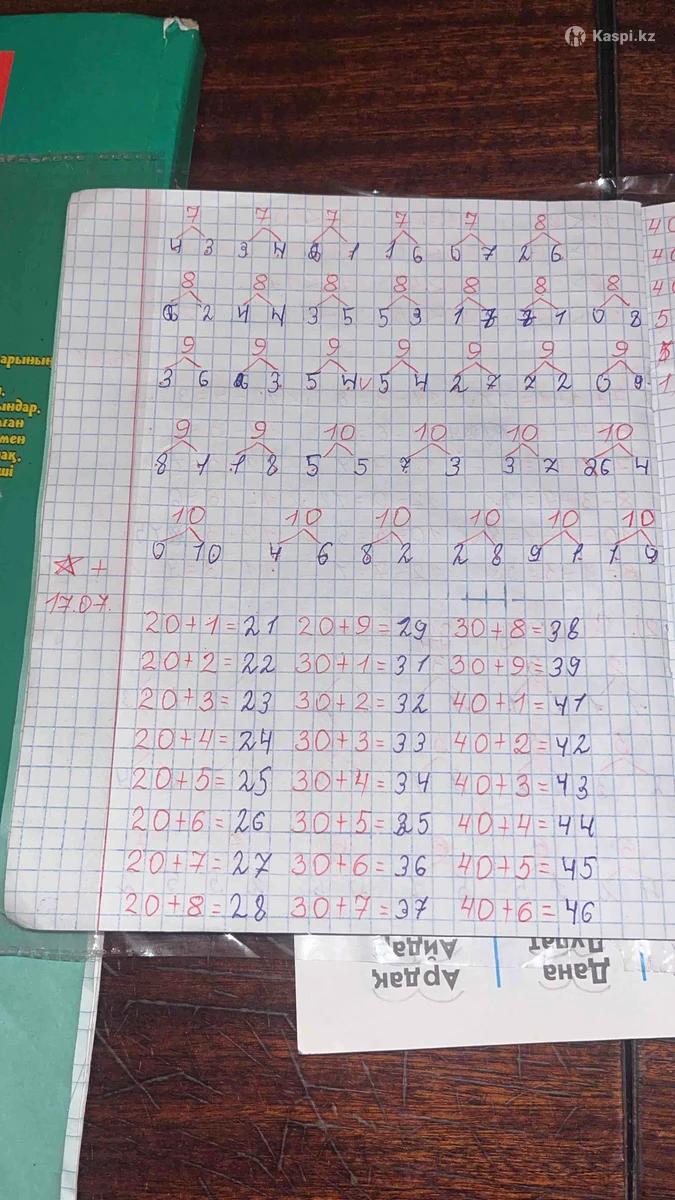 Kaspi.kz
7 7 7 7 7 8
4 3 3 4 6 1 1 6 0 7 2 6
8 8 8 8 8 8 8
6 2 4 4 3 5 5 3 1 7 7 1 0 8
9 9 9 9 9 9 9
3 6 6 3 5 4 5 4 2 7 7 2 0 9
9 9 10 10 10 10
8 1 1 8 5 5 7 3 3 7 26 4
10 10 10 10 10 10
0 10 4 6 8 2 2 8 9 1 1 9
+
17.07.
20+1=21 20+9=29 30+8=38
20+2=22 30+1=31 30+9=39
20+3=23 30+2=32 40+1=41
20+4=24 30+3=33 40+2=42
20+5=25 30+4=34 40+3=43
20+6=26 30+5=35 40+4=44
20+7=27 30+6=36 40+5=45
20+8=28 30+7=37 40+6=46
40
40
40
5
1
арының
ындар.
лған
мен
рақ.
ші
Ардақ Дана
Айда,